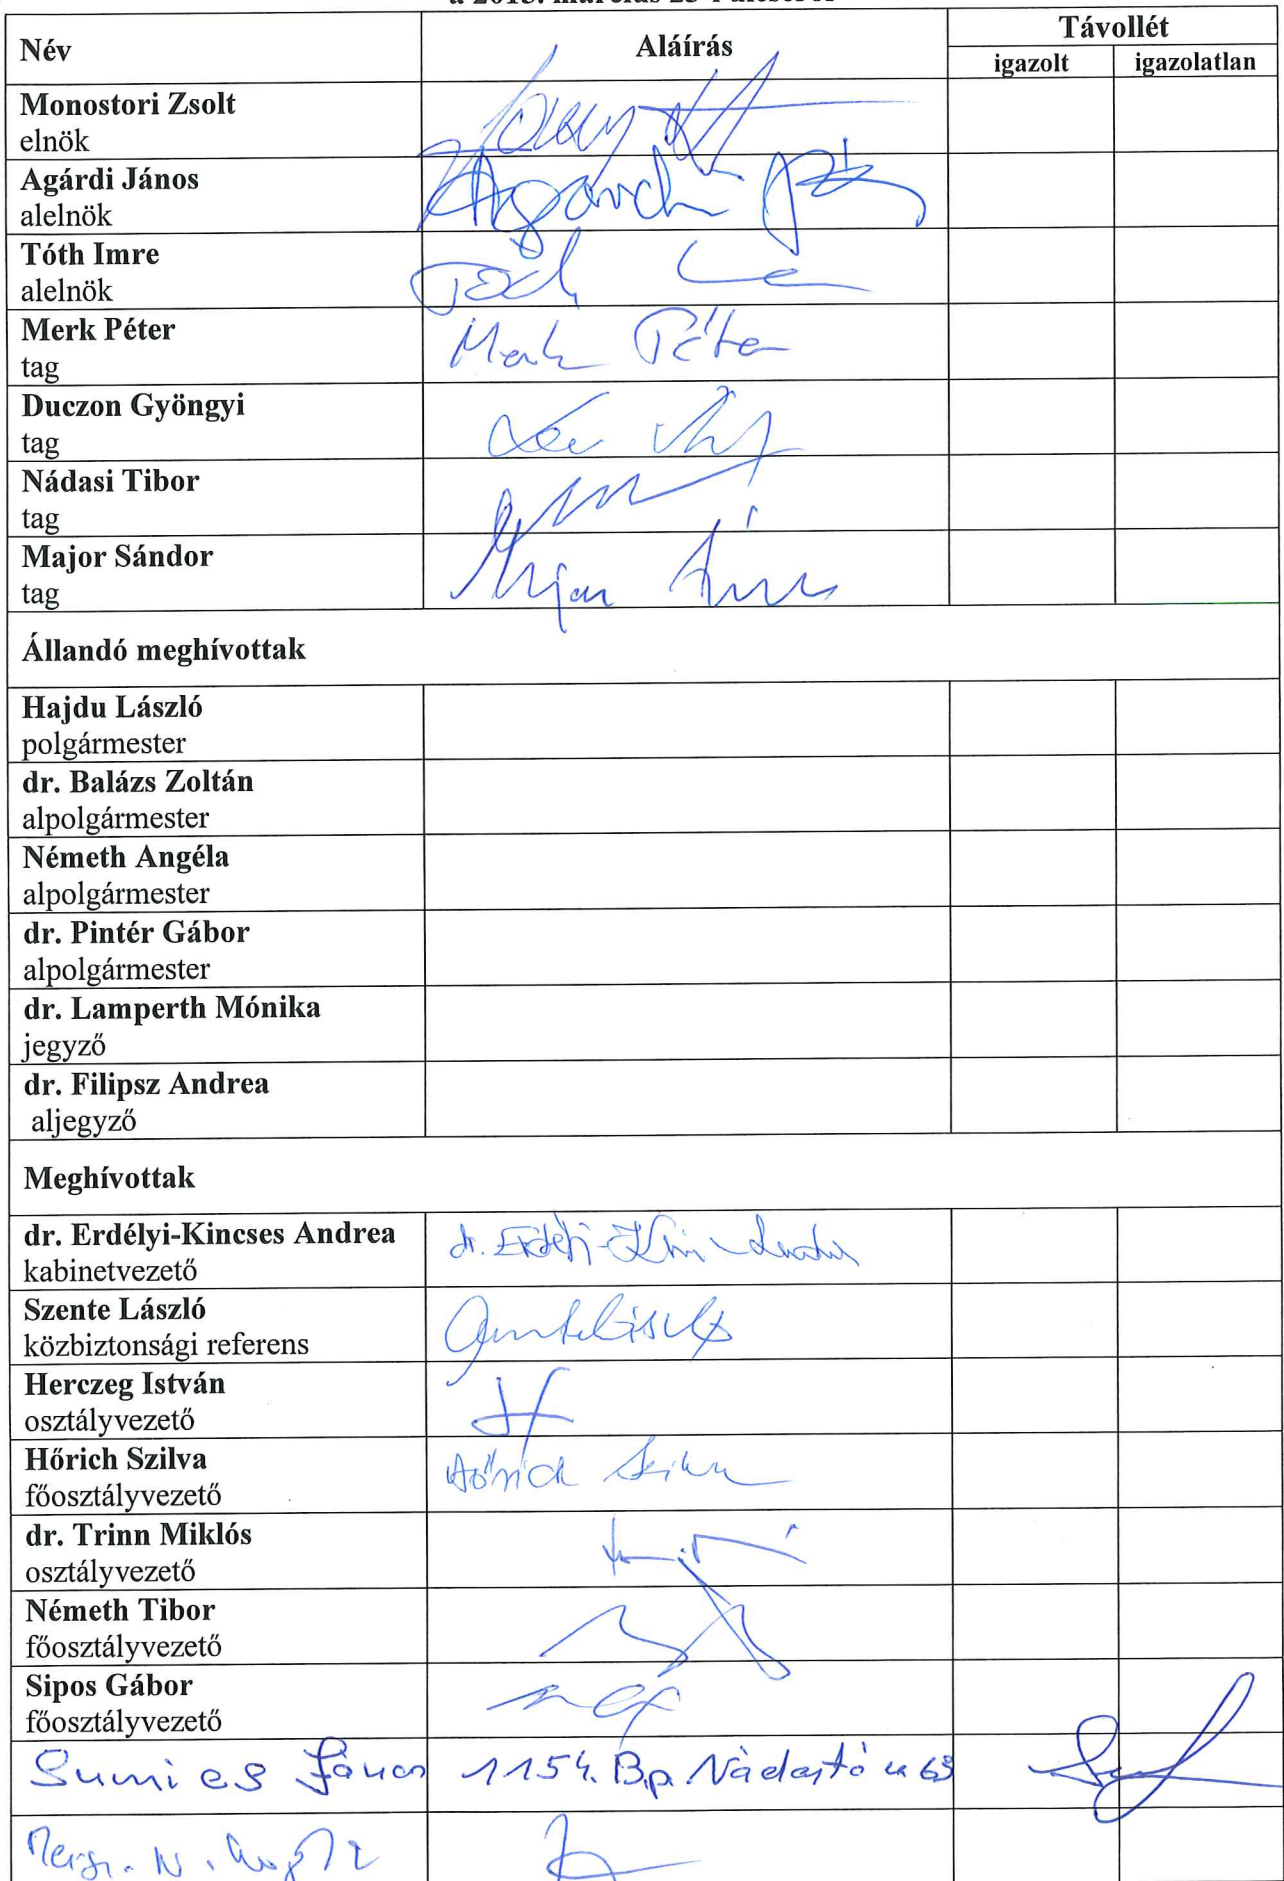 Név Aláírás Távollét
igazolt igazolatlan
Monostori Zsolt
elnök
Agárdi János
alelnök
Tóth Imre
alelnök
Merk Péter Merk Péter
tag
Duczon Gyöngyi
tag
Nádasi Tibor
tag
Major Sándor
tag
Állandó meghívottak
Hajdu László
polgármester
dr. Balázs Zoltán
alpolgármester
Németh Angéla
alpolgármester
dr. Pintér Gábor
alpolgármester
dr. Lamperth Mónika
jegyző
dr. Filipsz Andrea
aljegyző
Meghívottak
dr. Erdélyi-Kincses Andrea
kabinetvezető
Szente László
közbiztonsági referens
Herczeg István
osztályvezető
Hőrich Szilva Hőrich Szilva
főosztályvezető
dr. Trinn Miklós
osztályvezető
Németh Tibor
főosztályvezető
Sipos Gábor
főosztályvezető
János 1154. Bp. Nádastó u 63